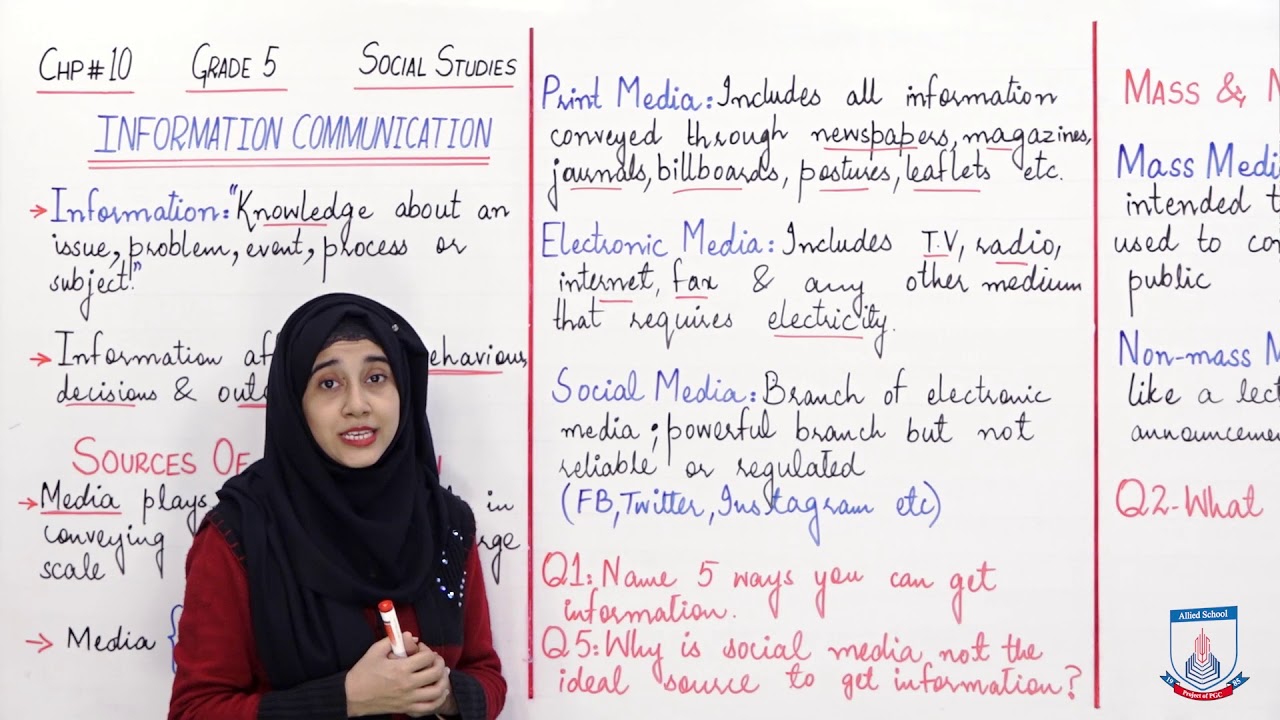 CHP#10 GRADE 5 SOCIAL STUDIES
INFORMATION COMMUNICATION
→ Information: "Knowledge about an
issue, problem, event, process or
subject."
→ Information af ehaviour,
decisions & out
SOURCES OF N
→ Media plays in
conveying rge
scale
→ Media {
Print Media: Includes all information
conveyed through newspapers, magazines,
journals, billboards, postures, leaflets etc.
Electronic Media: Includes T.V, radio,
internet, fax & any other medium
that requires electricity.
Social Media: Branch of electronic
media; powerful branch but not
reliable or regulated
(FB, Twitter, Instagram etc)
Q1: Name 5 ways you can get
information.
Q5: Why is social media not the
ideal source to get information?
MASS & N
Mass Medi
intended t
used to co
public
Non-mass M
like a lect
announcemen
Q2-What
Allied School
1985
Project of PGC